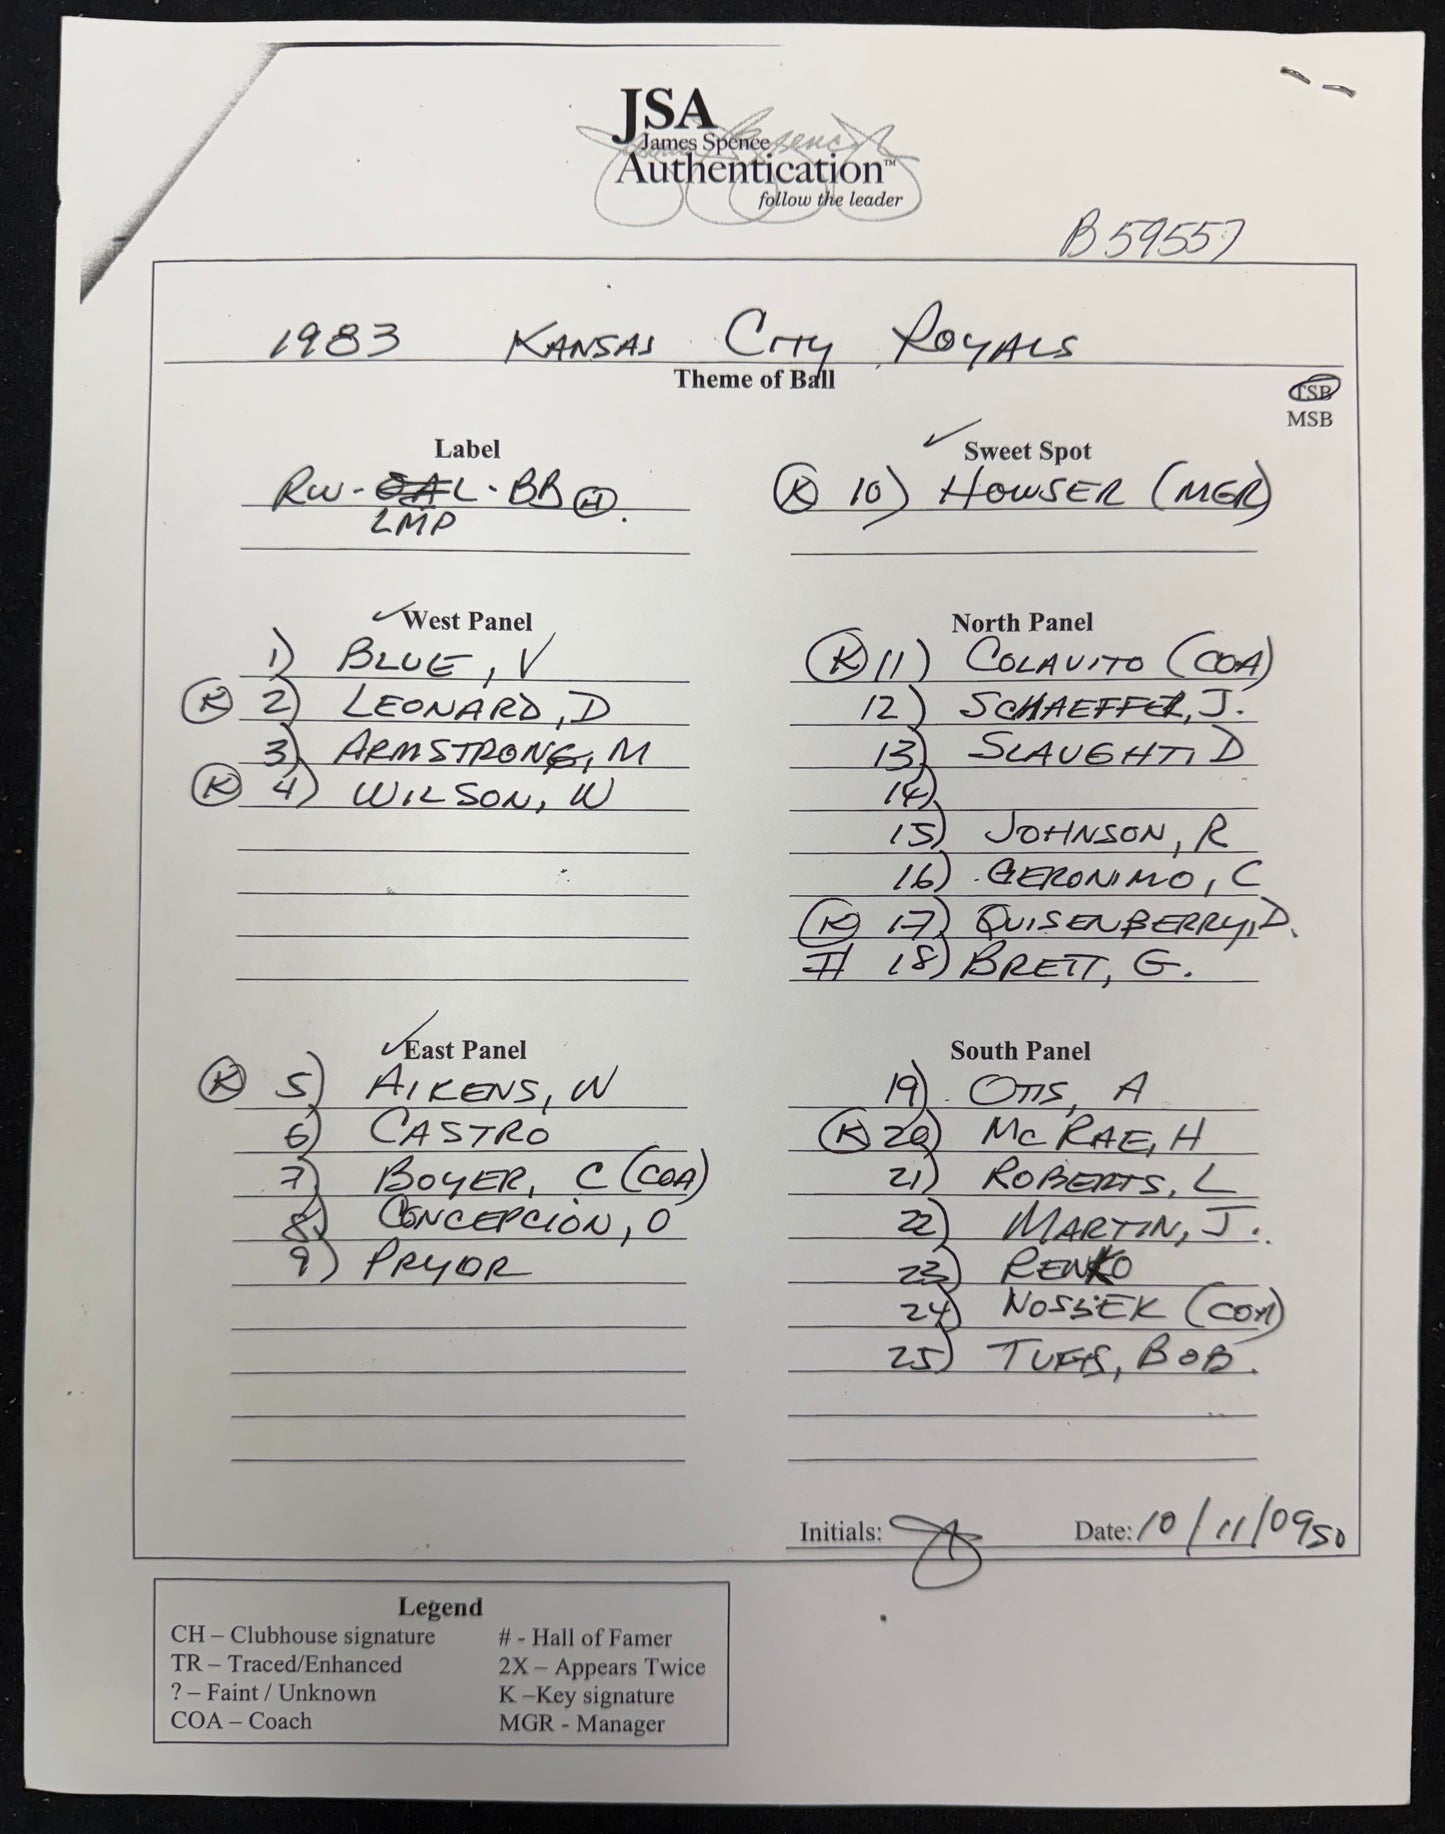 JSA
James Spence
Authentication™
follow the leader
B59557
1983 KANSAS CITY ROYALS
Theme of Ball
TSB
MSB
Label
RW-OAL-BB H.
LMP
Sweet Spot
K 10) HOWSER (MGR)
West Panel
1) BLUE, V
K 2) LEONARD, D
3) ARMSTRONG, M
K 4) WILSON, W
North Panel
K 11) COLAVITO (COA)
12) SCHAEFFER, J.
13) SLAUGHT, D
14)
15) JOHNSON, R
16) GERONIMO, C
K 17) QUISENBERRY, D.
# 18) BRETT, G.
East Panel
K 5) AIKENS, W
6) CASTRO
7) BOYER, C (COA)
8) CONCEPCION, O
9) PRYOR
South Panel
19) OTIS, A
K 20) MCRAE, H
21) ROBERTS, L
22) MARTIN, J.
23) RENKO
24) NOSSEK (COA)
25) TUFTS, BOB.
Initials:
Date: 10/11/09 SD
Legend
CH – Clubhouse signature
TR – Traced/Enhanced
? – Faint / Unknown
COA – Coach
# - Hall of Famer
2X – Appears Twice
K –Key signature
MGR - Manager